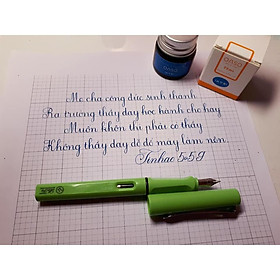 Mẹ cha công đức sinh thành
Ra trường thầy dạy học hành cho hay
Muốn khôn thì phải có thầy
Không thầy dạy dỗ đố mày làm nên.